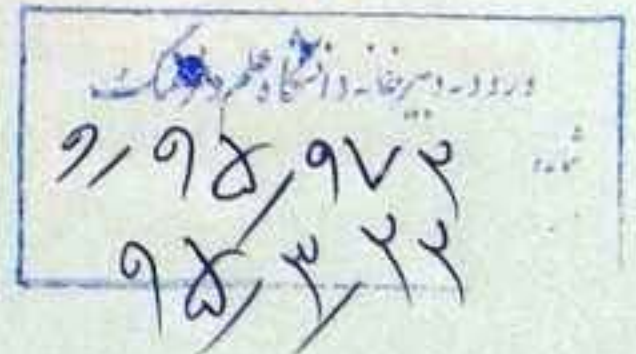 ورود به دبیرخانه دانشگاه علم و فرهنگ
شماره:
۹۵٫۹۷۲
۹۵/۳/۲۲